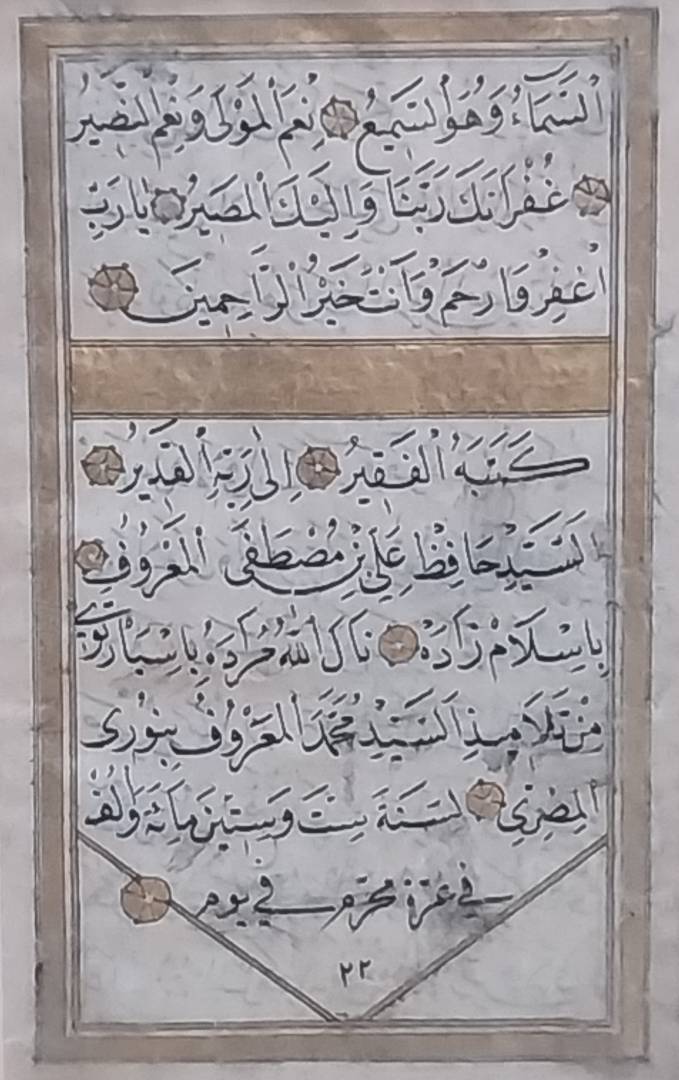 السَّمَاءِ وَهُوَ السَّمِيعُ نِعْمَ الْمَوْلَى وَنِعْمَ النَّصِيرُ
غُفْرَانَكَ رَبَّنَا وَاِلَيْكَ الْمَصِيرُ يَا رَبِّ
اغْفِرْ وَارْحَمْ وَاَنْتَ خَيْرُ الرَّاحِمِينَ
كَتَبَهُ الْفَقِيرُ اِلٰى رَبِّهِ الْقَدِيرُ
السَّيِّدْ حَافِظْ عَلِي بْنِ مُصْطَفَى الْمَعْرُوفِ
بِاِسْلَامْ زَادَهْ نَالَ اللّٰهُ مُرَادَهُ
مِنْ تَلَامِيذِ السَّيِّدْ مُحَمَّدَ الْمَعْرُوفُ بِنُورِى
الْمِصْرِي لسَنَةَ سِتَ وَسِتِّينَ مِائَةَ وَاَلْفْ
في غرّة محرّم في يوم
٢٢